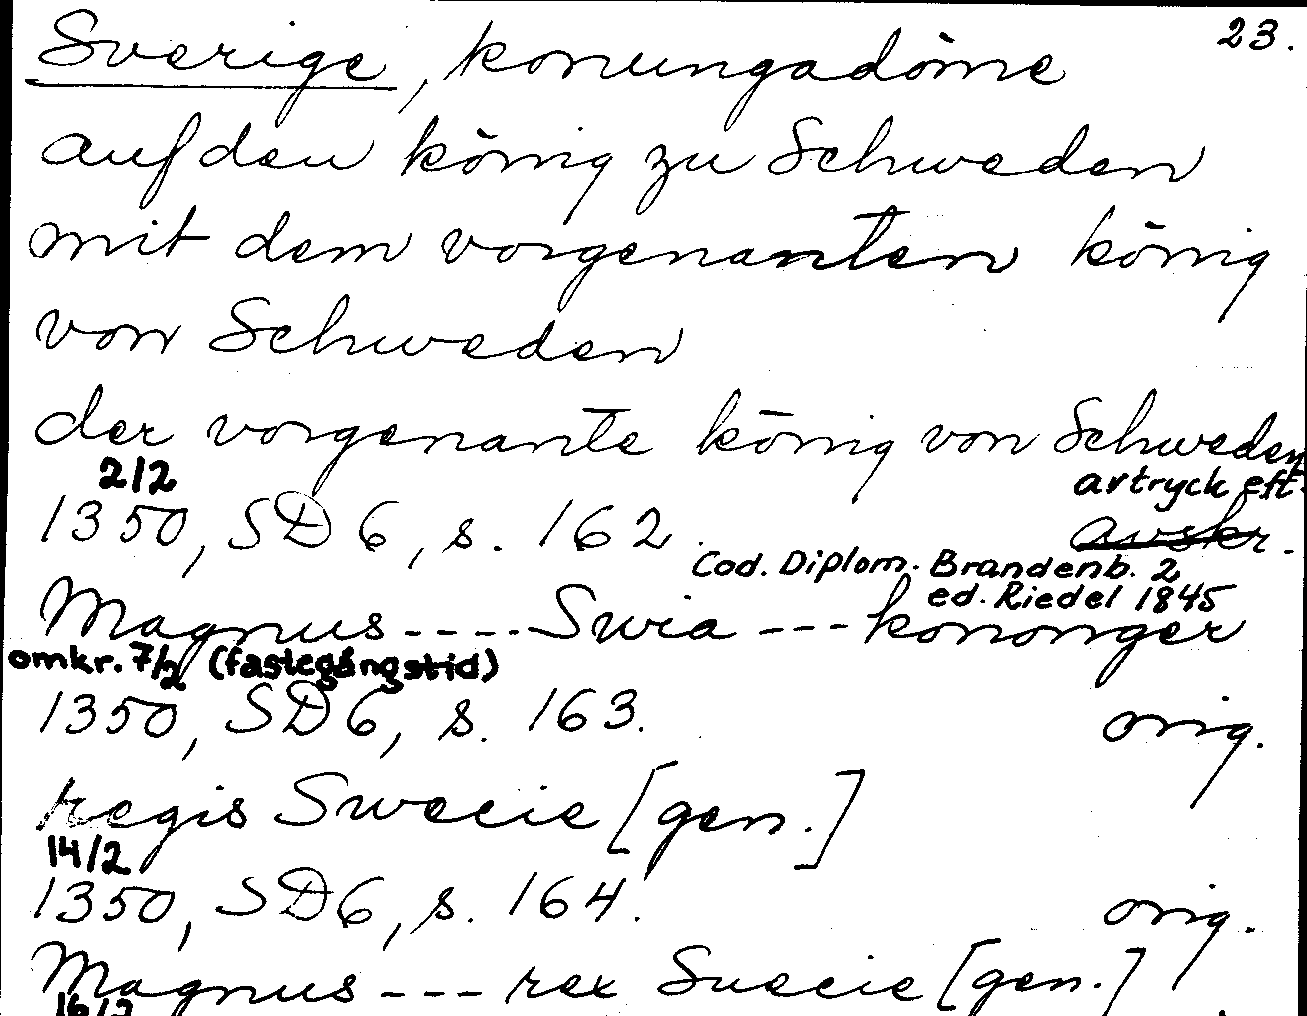 23.
Sverige, konungadöme
auf den könig zu Schweden
mit dem vorgenanten könig
von Schweden
der vorgenante könig von Schweden
2/2
avtryck eft.
1350, SD 6, s. 162. avskr.
Cod. Diplom. Brandenb. 2
ed. Riedel 1845
Magnus ---- Swia --- kononger
omkr. 7/2 (fastegångstid)
1350, SD 6, s. 163. orig.
regis Sweeie [gen.]
14/2
1350, SD 6, s. 164. orig.
Magnus --- rex Sueeie [gen.]